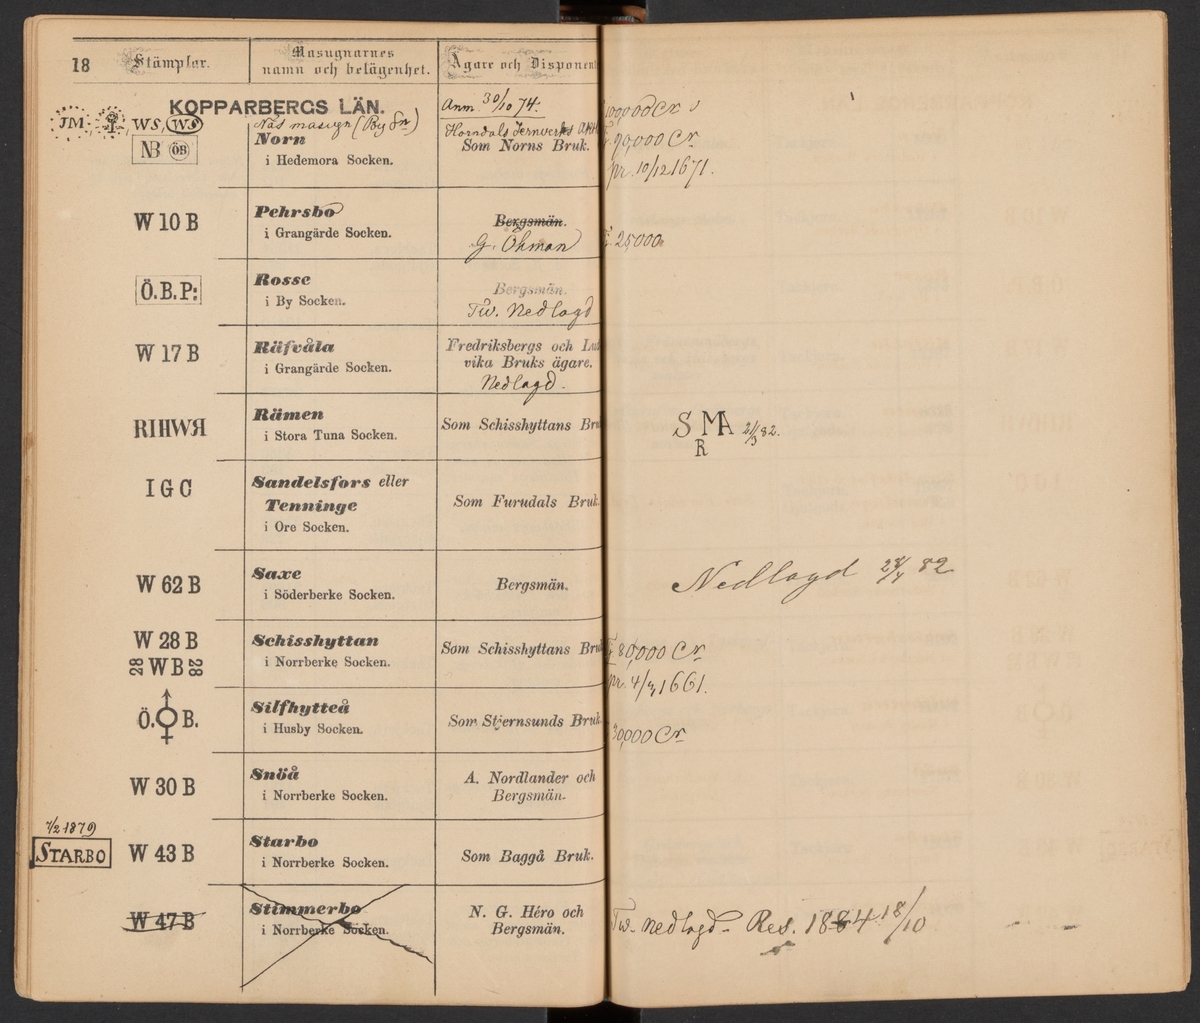 18
Stämplar.
Masugnarnes
namn och belägenhet.
Ägare och Disponent
KOPPARBERGS LÄN.
Anm. 30/10 74.
100,000 Cr
JM
WS, WS
Näs masugn (By Sn)
Horndals Jernverks
NB ÖB
Norn
i Hedemora Socken.
Som Norns Bruk.
90,000 Cr
pr. 10/12 1671.
W 10 B
Pehrsbo
i Grangärde Socken.
Bergsmän.
G. Öhman
25,000
Ö.B.P:
Rosse
i By Socken.
Bergsmän.
Tw. Nedlagd
W 17 B
Räfvåla
i Grangärde Socken.
Fredriksbergs och Lut
vika Bruks ägare.
Nedlagd.
RIHWR
Rämen
i Stora Tuna Socken.
Som Schisshyttans Bru
S MA 21/3 82.
R
I G C
Sandelsfors eller
Tenninge
i Ore Socken.
Som Furudals Bruk.
W 62 B
Saxe
i Söderberke Socken.
Bergsmän.
Nedlagd 28/4 82
W 28 B
28 WB 28
Schisshyttan
i Norrberke Socken.
Som Schisshyttans Bru
80,000 Cr
pr. 4/3 1661.
Ö. B.
Silfhytteå
i Husby Socken.
Som Stjernsunds Bruk.
30,000 Cr
W 30 B
Snöå
i Norrberke Socken.
A. Nordlander och
Bergsmän.
7/2 1879
STARBO
W 43 B
Starbo
i Norrberke Socken.
Som Baggå Bruk.
W 47 B
Stimmerbo
i Norrberke Socken.
N. G. Héro och
Bergsmän.
Tw. nedlagd - Res. 1884 18/10